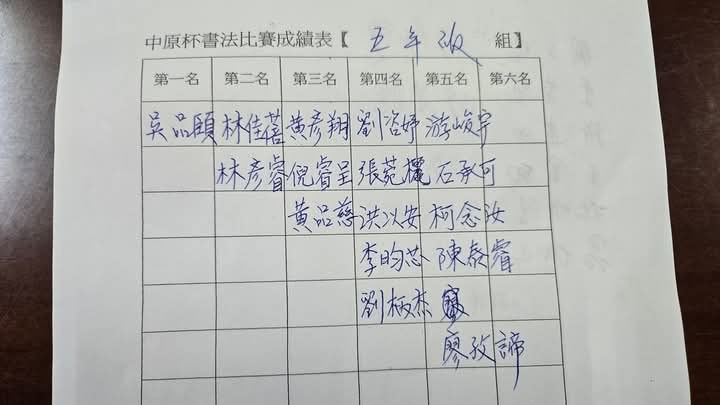 中原杯書法比賽成績表【五年級 組】
第一名 第二名 第三名 第四名 第五名 第六名
吳品頤 林佳蓓 黃彥翔 劉咨妤 游峻宇
林彥睿 倪睿呈 張菀 石承可
黃品慈 洪以安 柯念汝
李昀芯 陳泰睿
劉柄杰
廖孜諦